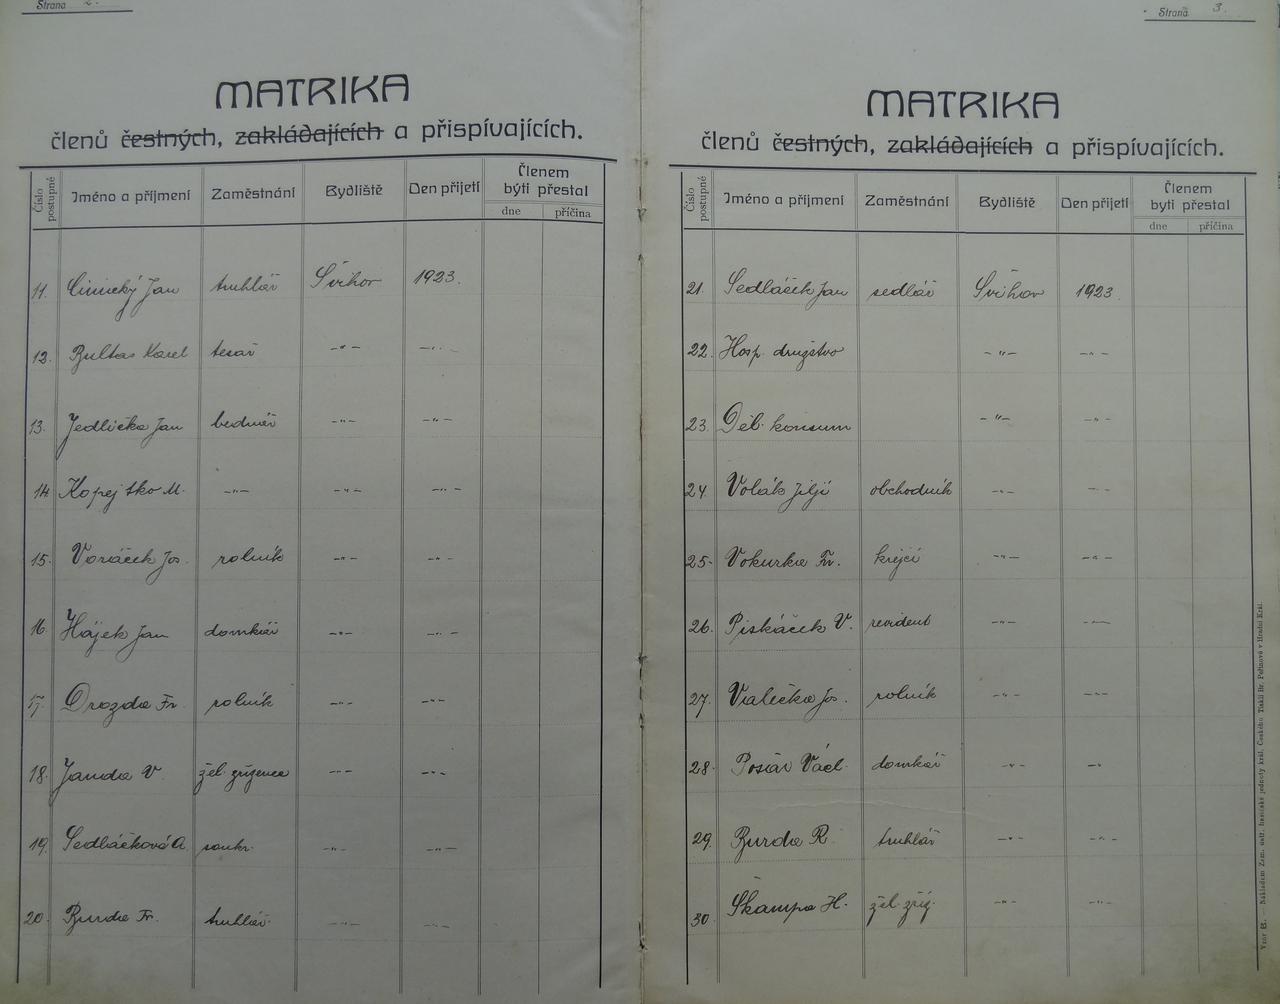 Strana 2.
MATRIKA
členů čestných, zakládajících a přispívajících.
Číslo postupné Jméno a příjmení Zaměstnání Bydliště Den přijetí Členem býti přestal
dne příčina
11. Cinický Jan truhlář Švihov 1923.
12. Bultas Karel tesař –„– –„–
13. Jedlička Jan bednář –„– –„–
14. Kopejtko M. –„– –„– –„–
15. Voráček Jos. rolník –„– –„–
16. Hájek Jan domkář –„– –„–
17. Drozda Fr. rolník –„– –„–
18. Janda V. žel. zřízenec –„– –„–
19. Sedláčková A. soukr. –„– –„–
20. Burda Fr. truhlář –„– –„–
Strana 3.
MATRIKA
členů čestných, zakládajících a přispívajících.
Číslo postupné Jméno a příjmení Zaměstnání Bydliště Den přijetí Členem býti přestal
dne příčina
21. Sedláček Jan sedlář Švihov 1923.
22. Hosp. družstvo –„– –„–
23. Děl. konsum –„– –„–
24. Volák Jiljí obchodník –„– –„–
25. Vokurka Fr. krejčí –„– –„–
26. Piskáček V. revident –„– –„–
27. Vialečka Jos. rolník –„– –„–
28. Posiar Václ. domkář –„– –„–
29. Burda R. truhlář –„– –„–
30. Škampa H. žel. zříz. –„– –„–
Vzor B. — Nákladem Zem. ústř. hasičské jednoty král. Českého. Tiskli Br. Peřinové v Hradci Král.